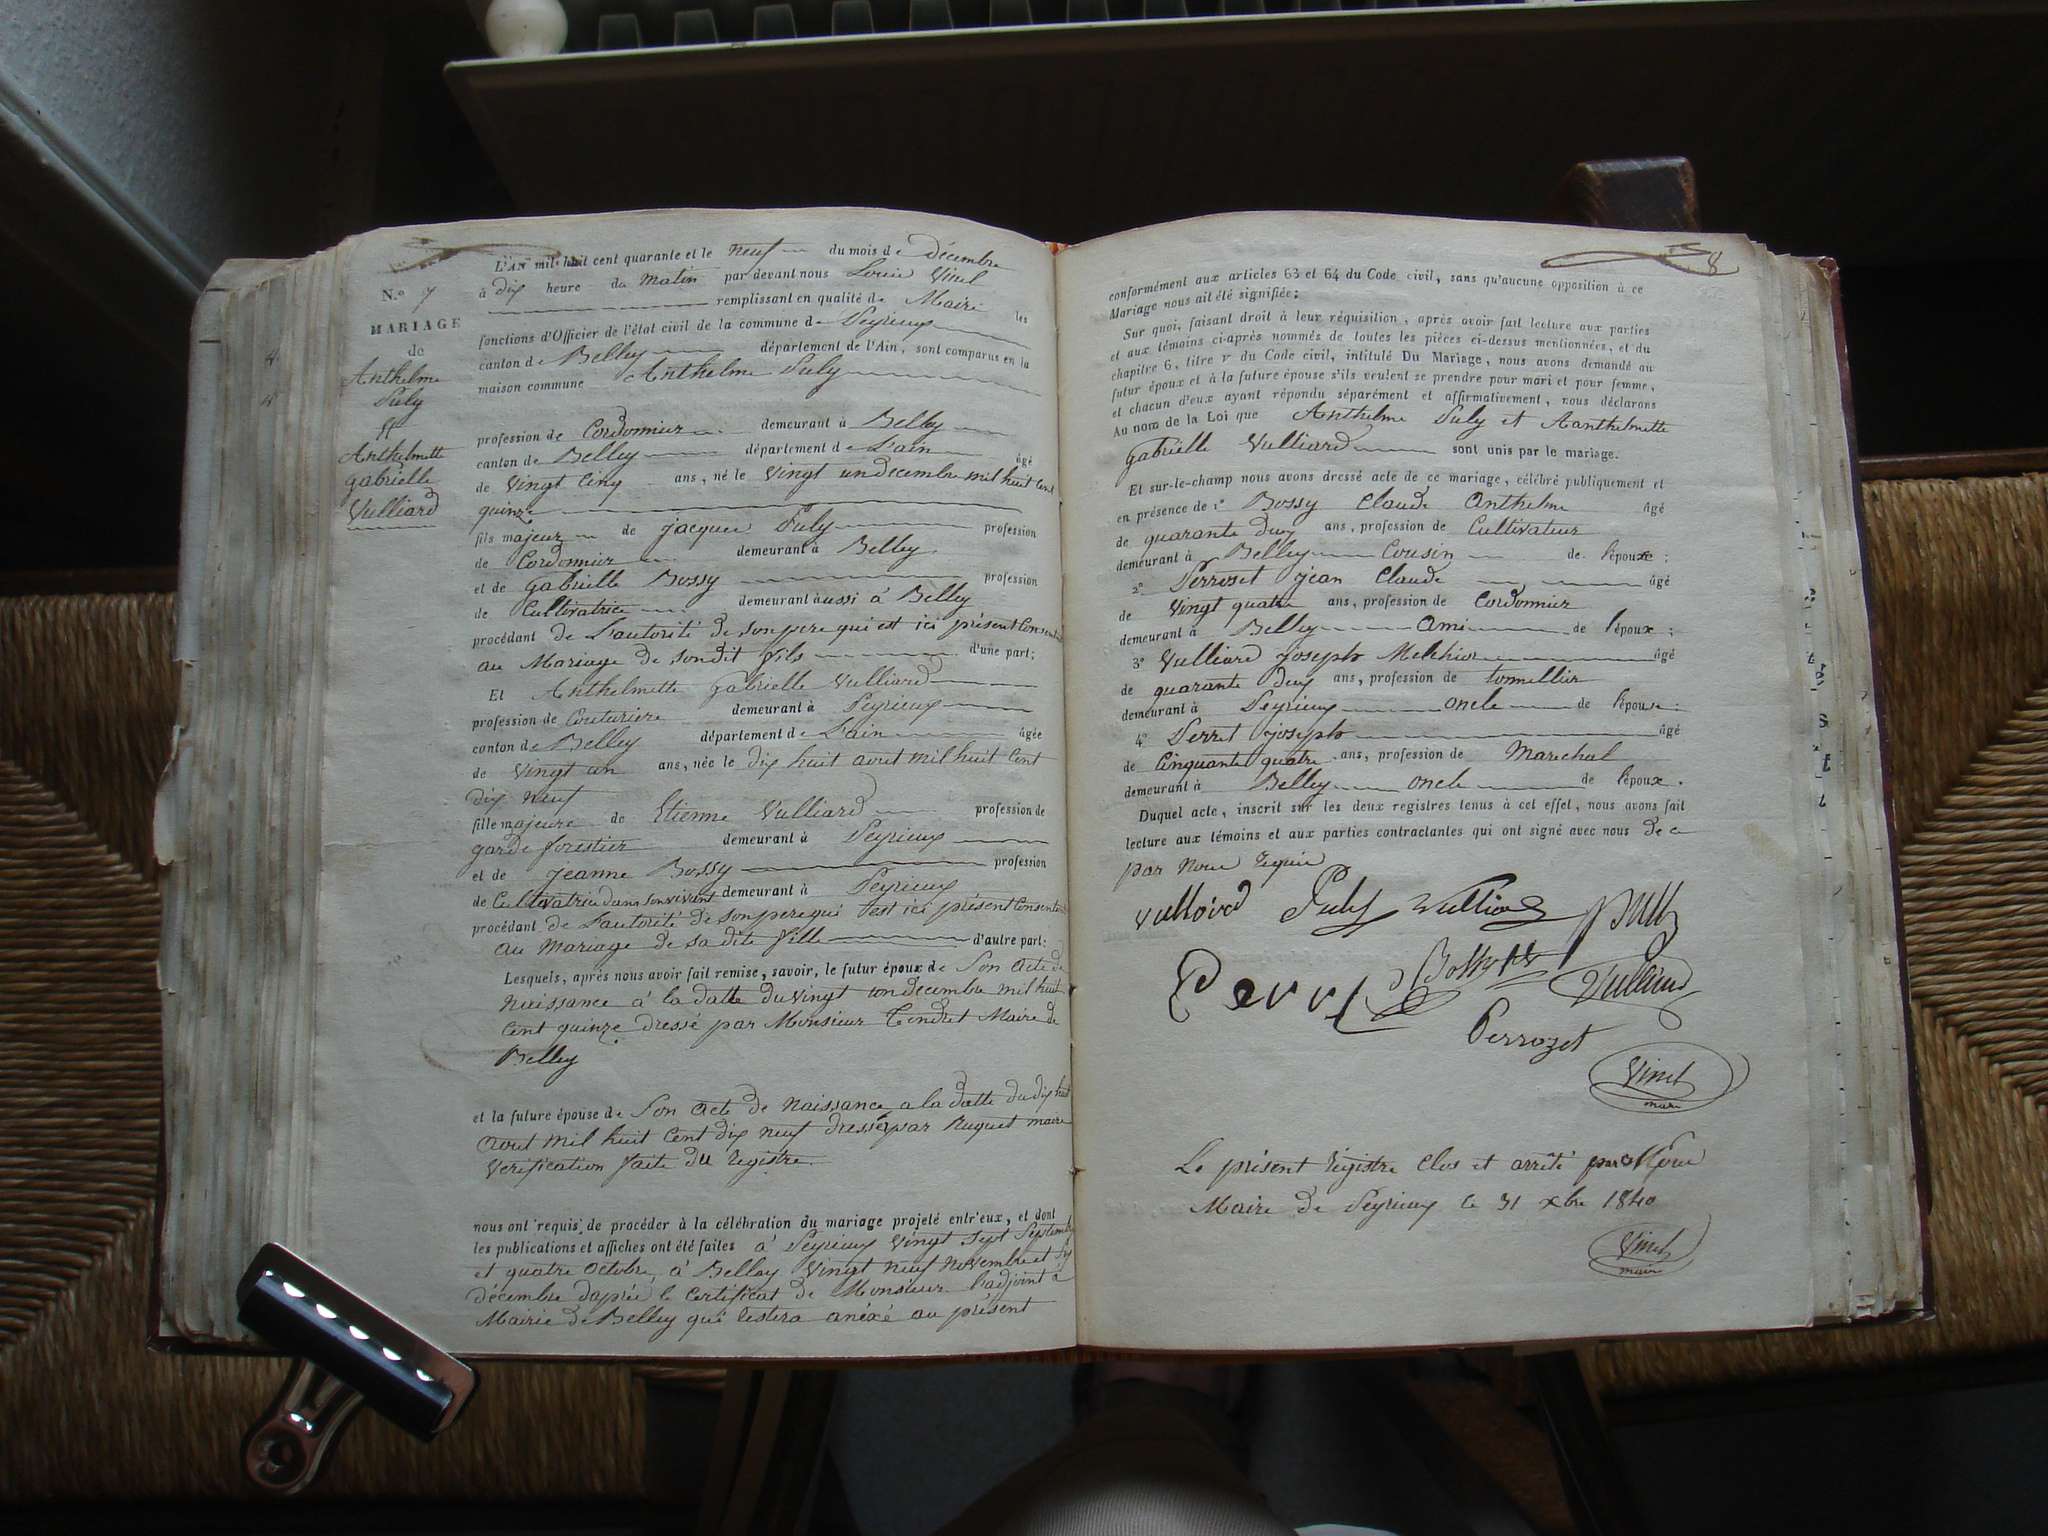 N.º 7
MARIAGE
de
Anthelme
Puly
et
Anthelmette
gabrielle
Vulliard
L'AN mil huit cent quarante et le neuf du mois de décembre
à dix heure du matin par devant nous Louis Vinet
remplissant en qualité de Maire les
fonctions d'Officier de l'état civil de la commune de Peyrieux
canton de Belley département de l'Ain, sont comparus en la
maison commune Anthelme Puly
profession de Cordonnier demeurant à Belley
canton de Belley département de L'ain âgé
de Vingt Cinq ans, né le Vingt un decembre mil huit Cent
quinze
fils majeur de jacques Puly profession
de Cordonnier demeurant à Belley
et de gabrielle Bossy profession
de Cultivatrice demeurant aussi à Belley
procédant de L'autorité de son pere qui est ici présent Consentant
au Mariage de sondit fils d'une part;
Et Anthelmette gabrielle Vulliard
profession de Couturiere demeurant à Peyrieux
canton de Belley département de L'ain âgée
de Vingt un ans, née le dix huit aout mil huit Cent
dix neuf
fille majeure de Etienne Vulliard profession de
garde forestier demeurant à Peyrieux
et de jeanne Bossy profession
de Cultivatrice dans son vivant demeurant à Peyrieux
procédant de L'autorité de son pere qui est ici présent Consentant
au mariage de sa dite fille d'autre part:
Lesquels, après nous avoir fait remise, savoir, le futur époux de Son acte de
Naissance à la datte du Vingt un decembre mil huit
Cent quinze dressé par Monsieur Tendret Maire de
Belley
et la future épouse de Son acte de Naissance a la datte du dix huit
aout mil huit Cent dix neuf dressé par huguet maire
Verification faite du registre.
nous ont requis de procéder à la célébration du mariage projeté entr'eux, et dont
les publications et affiches ont été faites à Peyrieux Vingt Sept Septembre
et quatre Octobre, à Belley Vingt neuf Novembre et Six
décembre daprès le Certificat de Monsieur l'adjoint a
Mairie de Belley qui restera anéxé au présent
8
conformément aux articles 63 et 64 du Code civil, sans qu'aucune opposition à ce
Mariage nous ait été signifiée;
Sur quoi, faisant droit à leur réquisition, après avoir fait lecture aux parties
et aux témoins ci-après nommés de toutes les pièces ci-dessus mentionnées, et du
chapitre 6, titre V du Code civil, intitulé Du Mariage, nous avons demandé au
futur époux et à la future épouse s'ils veulent se prendre pour mari et pour femme,
et chacun d'eux ayant répondu séparément et affirmativement, nous déclarons
Au nom de la Loi que Anthelme Puly et Aanthelmette
gabrielle Vulliard sont unis par le mariage.
Et sur-le-champ nous avons dressé acte de ce mariage, célébré publiquement et
en présence de 1º Bossy Claude Anthelme âgé
de quarante deux ans, profession de Cultivateur
demeurant à Belley Cousin de l'épouse:
2º Perrozet jean Claude âgé
de Vingt quatre ans, profession de Cordonnier
demeurant à Belley ami de l'époux;
3º Vulliard joseph Melchior âgé
de quarante deux ans, profession de tonnellier
demeurant à Peyrieux oncle de l'épouse:
4º Perret joseph âgé
de Cinquante quatre ans, profession de Marechal
demeurant à Belley oncle de l'époux.
Duquel acte, inscrit sur les deux registres tenus à cet effet, nous avons fait
lecture aux témoins et aux parties contractantes qui ont signé avec nous de ce
par Nous requis
Vulliard Puly Vulliard Pully
Perret Bossy Vulliard
Perrozet
Vinet
maire
Le présent régistre Clos et arrêté par Nous
Maire de Peyrieux le 31 xbre 1840
Vinet
maire